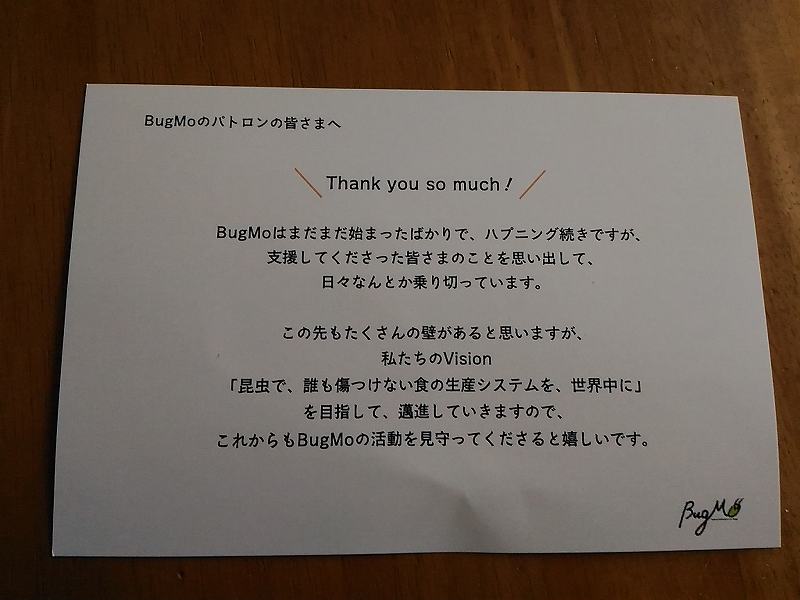 BugMoのパトロンの皆さまへ
Thank you so much!
BugMoはまだまだ始まったばかりで、ハプニング続きですが、
支援してくださった皆さまのことを思い出して、
日々なんとか乗り切っています。
この先もたくさんの壁があると思いますが、
私たちのVision
「昆虫で、誰も傷つけない食の生産システムを、世界中に」
を目指して、邁進していきますので、
これからもBugMoの活動を見守ってくださると嬉しいです。
BugMo